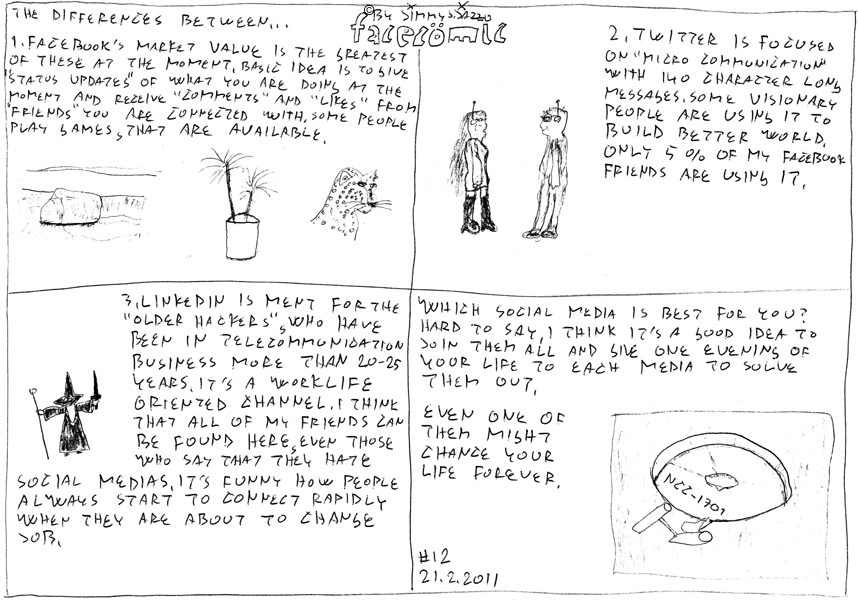 THE DIFFERENCES BETWEEN...
© By SIMMYS.SAZZO
facecömic
1. FACEBOOK'S MARKET VALUE IS THE GREATEST
OF THESE AT THE MOMENT. BASIC IDEA IS TO GIVE
"STATUS UPDATES" OF WHAT YOU ARE DOING AT THE
MOMENT AND RECEIVE "COMMENTS" AND "LIKES" FROM
"FRIENDS" YOU ARE CONNECTED WITH. SOME PEOPLE
PLAY GAMES, THAT ARE AVAILABLE.
2. TWITTER IS FOCUSED
ON "MICRO COMMUNICATION"
WITH 140 CHARACTER LONG
MESSAGES. SOME VISIONARY
PEOPLE ARE USING IT TO
BUILD BETTER WORLD.
ONLY 5 % OF MY FACEBOOK
FRIENDS ARE USING IT.
3. LINKEDIN IS MENT FOR THE
"OLDER HACKERS", WHO HAVE
BEEN IN TELECOMMUNICATION
BUSINESS MORE THAN 20-25
YEARS. IT'S A WORKLIFE
ORIENTED CHANNEL. I THINK
THAT ALL OF MY FRIENDS CAN
BE FOUND HERE, EVEN THOSE
WHO SAY THAT THEY HATE
SOCIAL MEDIAS. IT'S FUNNY HOW PEOPLE
ALWAYS START TO CONNECT RAPIDLY
WHEN THEY ARE ABOUT TO CHANGE
JOB.
WHICH SOCIAL MEDIA IS BEST FOR YOU?
HARD TO SAY. I THINK IT'S A GOOD IDEA TO
JOIN THEM ALL AND GIVE ONE EVENING OF
YOUR LIFE TO EACH MEDIA TO SOLVE
THEM OUT.
EVEN ONE OF
THEM MIGHT
CHANGE YOUR
LIFE FOREVER.
NCC-1701
#12
21.2.2011